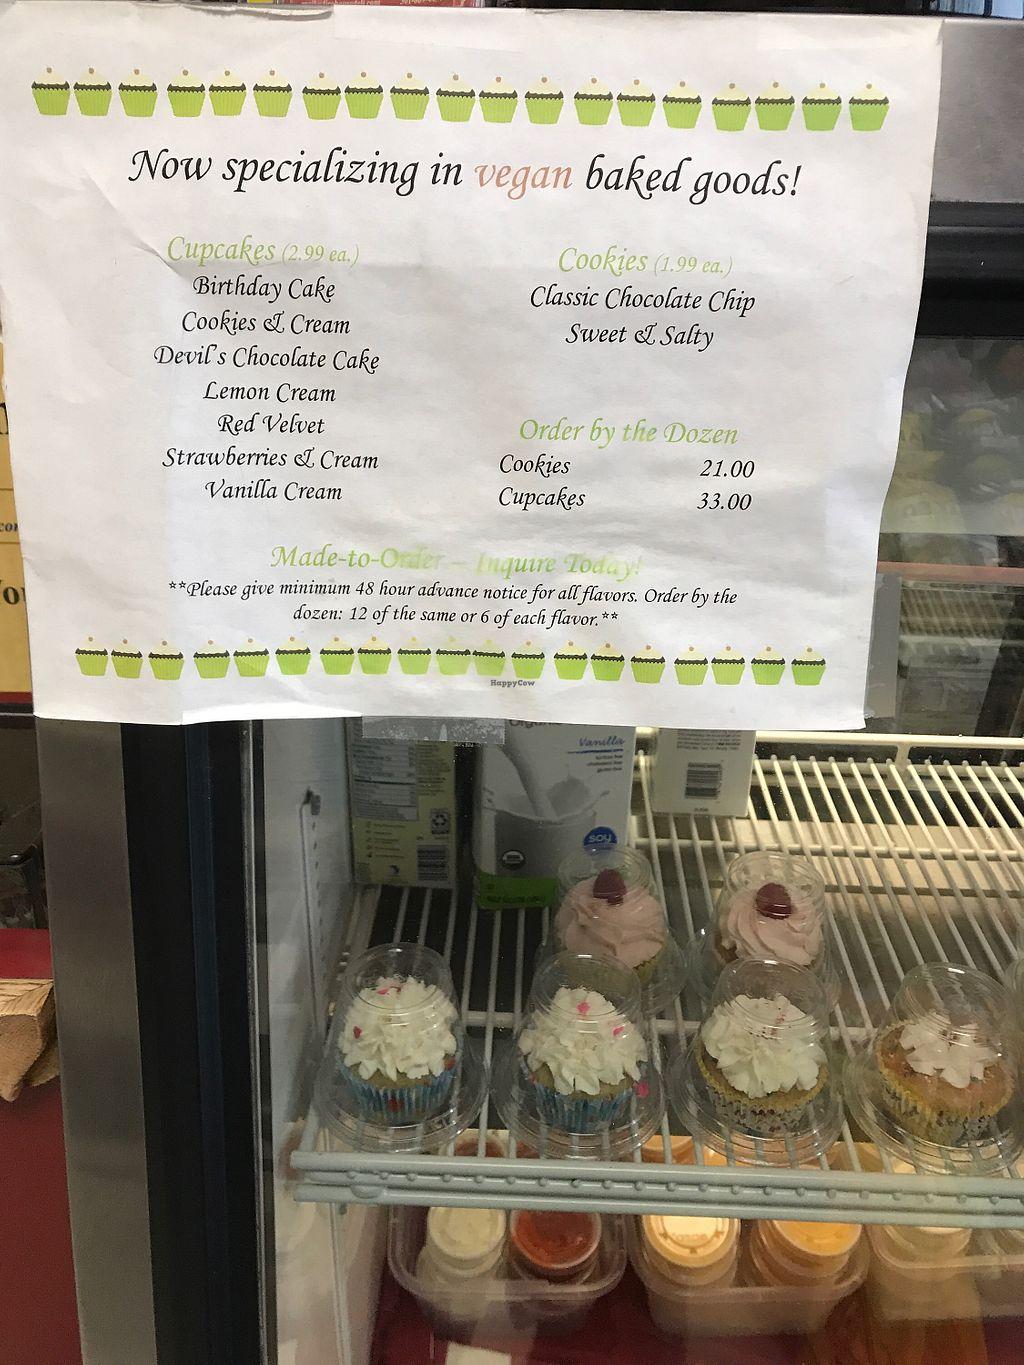 Now specializing in vegan baked goods!
Cupcakes (2.99 ea.)
Birthday Cake
Cookies & Cream
Devil's Chocolate Cake
Lemon Cream
Red Velvet
Strawberries & Cream
Vanilla Cream
Cookies (1.99 ea.)
Classic Chocolate Chip
Sweet & Salty
Order by the Dozen
Cookies 21.00
Cupcakes 33.00
Made-to-Order – Inquire Today!
**Please give minimum 48 hour advance notice for all flavors. Order by the
dozen: 12 of the same or 6 of each flavor.**
HappyCow
Vanilla
soy